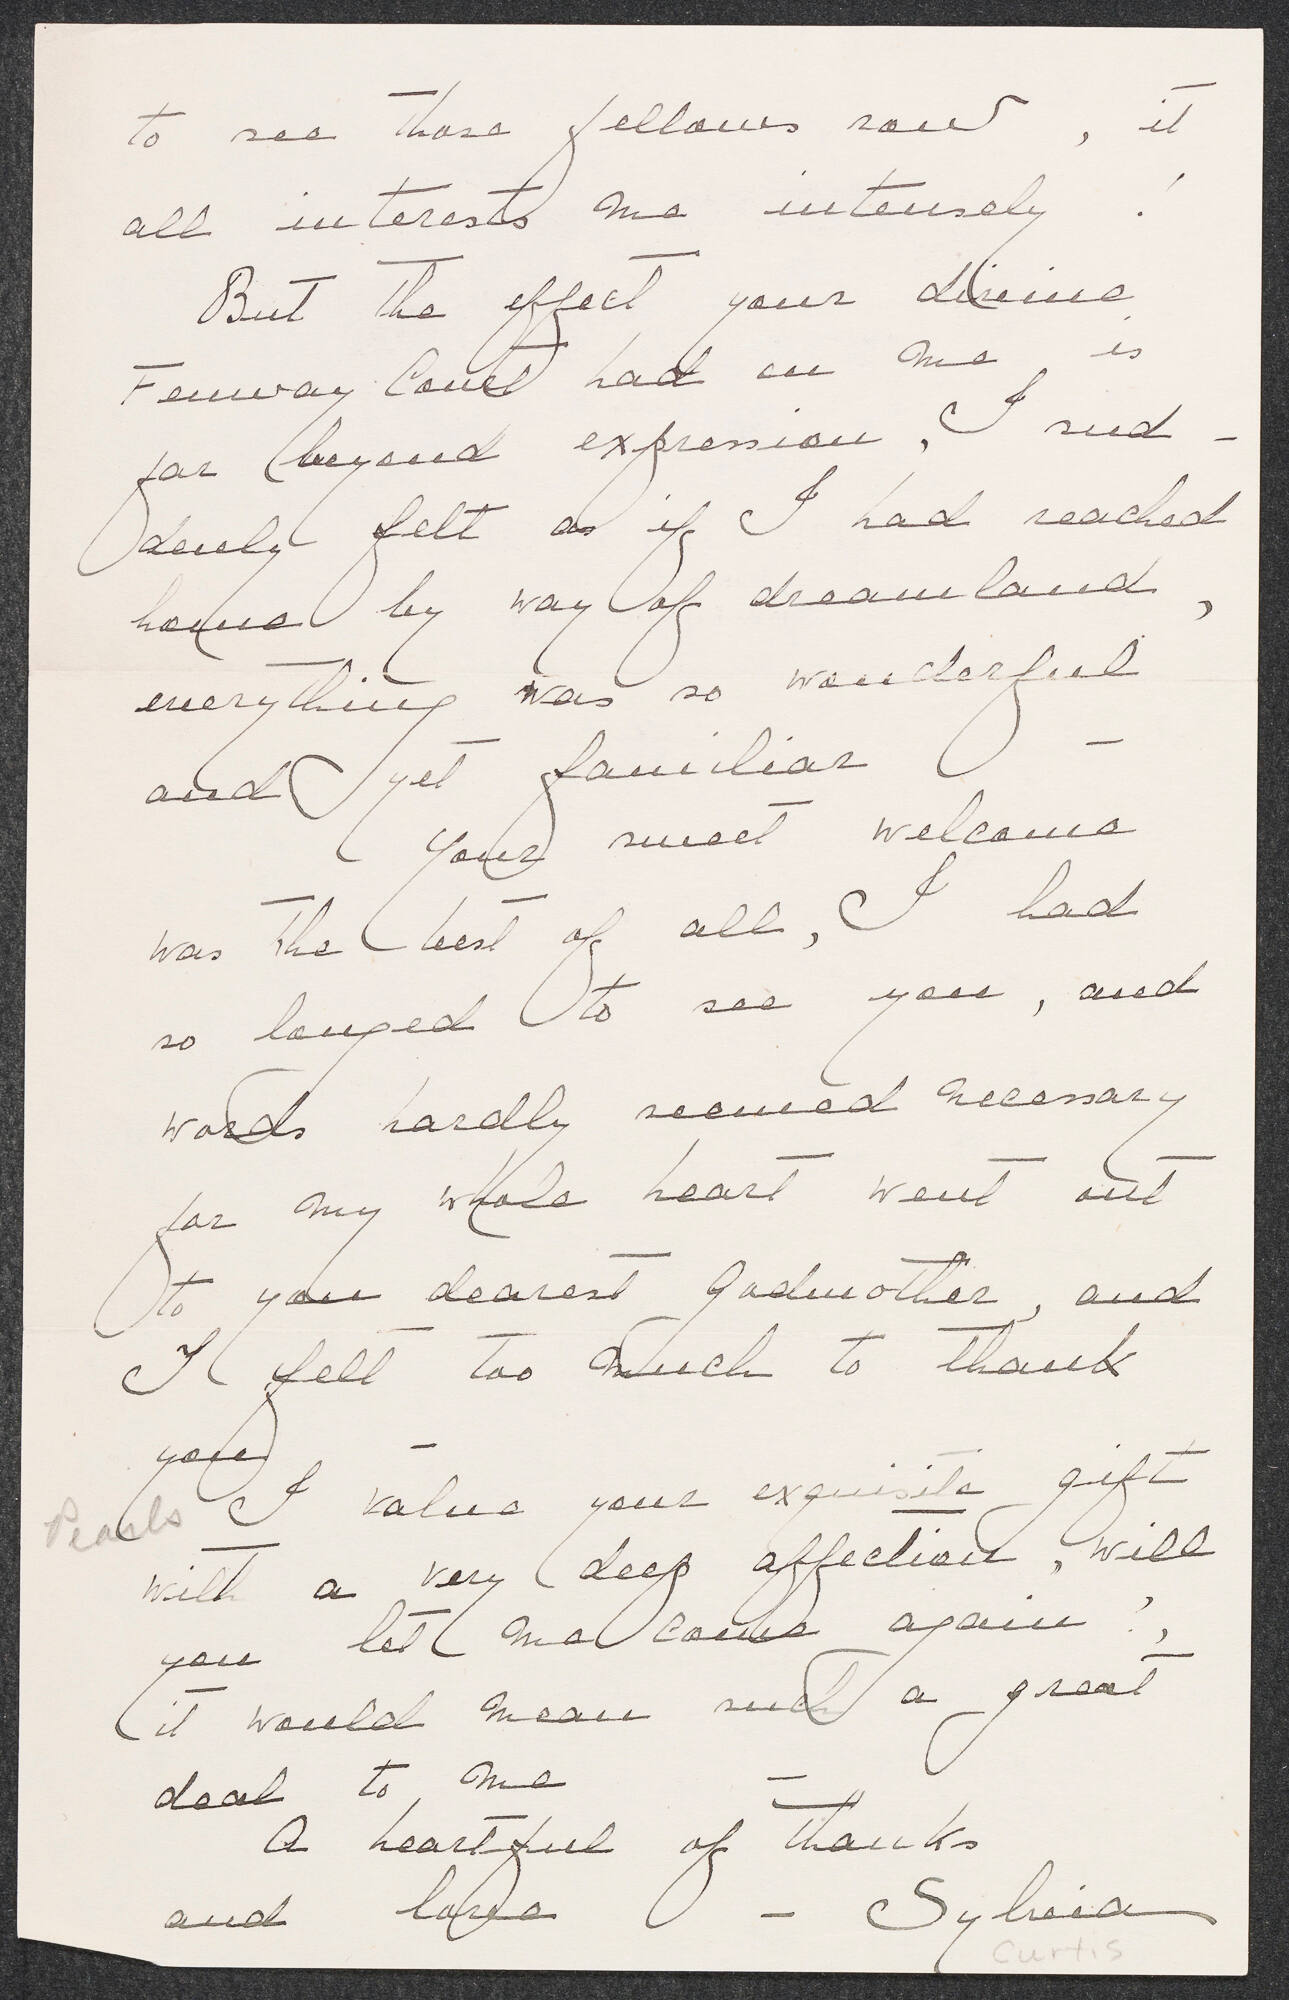 to see those fellows row, it
all interests me intensely!
But the effect your divine
Fenway Court had on me is
far beyond expression, I sud-
denly felt as if I had reached
home by way of dreamland,
everything was so wonderful
and yet familiar —
Your sweet welcome
was the best of all, I had
so longed to see you, and
words hardly seemed necessary
for my whole heart went out
to you dearest Godmother, and
I felt too much to thank
you —
Pearls I value your exquisite gift
with a very deep affection, will
you let me come again?,
it would mean such a great
deal to me —
A heartful of thanks
and love — Sylvia
Curtis